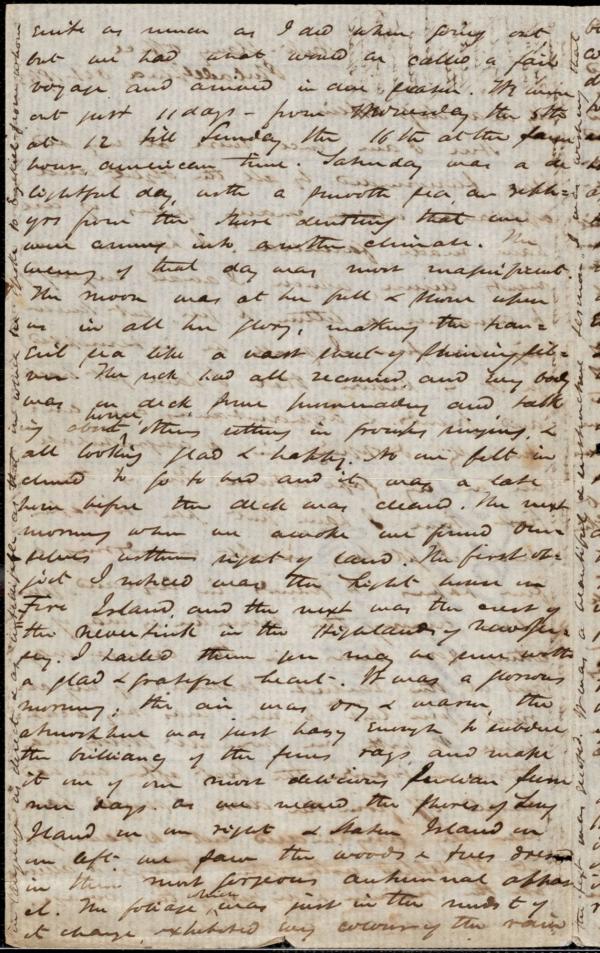 quite as much as I did when going out
but we had what would be called a fair
voyage and arrived in due season. We were
out just 11 days - from Wednesday the 5th
at 12 till Sunday the 16th at the same
hour, american time. Saturday was a de
lightful day, with a smooth sea, an zeph=
yrs from the shore denoting that we
were coming into another climate. The
evening of that day was most magnificent.
The moon was at her full & shone upon
us in all her glory, making the tran=
quil sea like a vast sheet of shining sil=
ver. The sick had all recovered, and every body
was on deck some promenading and talk
ing about home, others sitting in groups singing, &
all looking glad & happy. No one felt in
clined to go to bed and it was a late
hour before the deck was cleared. The next
morning when we awoke we found our=
selves within sight of land. The first ob=
ject I noticed was the light house on
Fire Island, and the next was the crest of
the Neversink in the Highlands of New Jer=
sey. I hailed them you may be sure with
a glad & grateful heart. It was a glorious
morning, the air was dry & warm, the
atmosphere was just hazy enough to subdue
the brilliancy of the suns rays, and make
it one of our most delicious Indian Sum
mer days. as we neared the shores of Long
Island on our right & Staten Island on
our left we saw the woods & trees dressed
in their most gorgeous autumnal appar
el. The foliage, which was just in the midst of
its change, exhibited every colour of the rain
in language as direct & as as that in which he spoke to from whom
the text was quoted. It was a beautiful & instructive sermon. I was wishing that